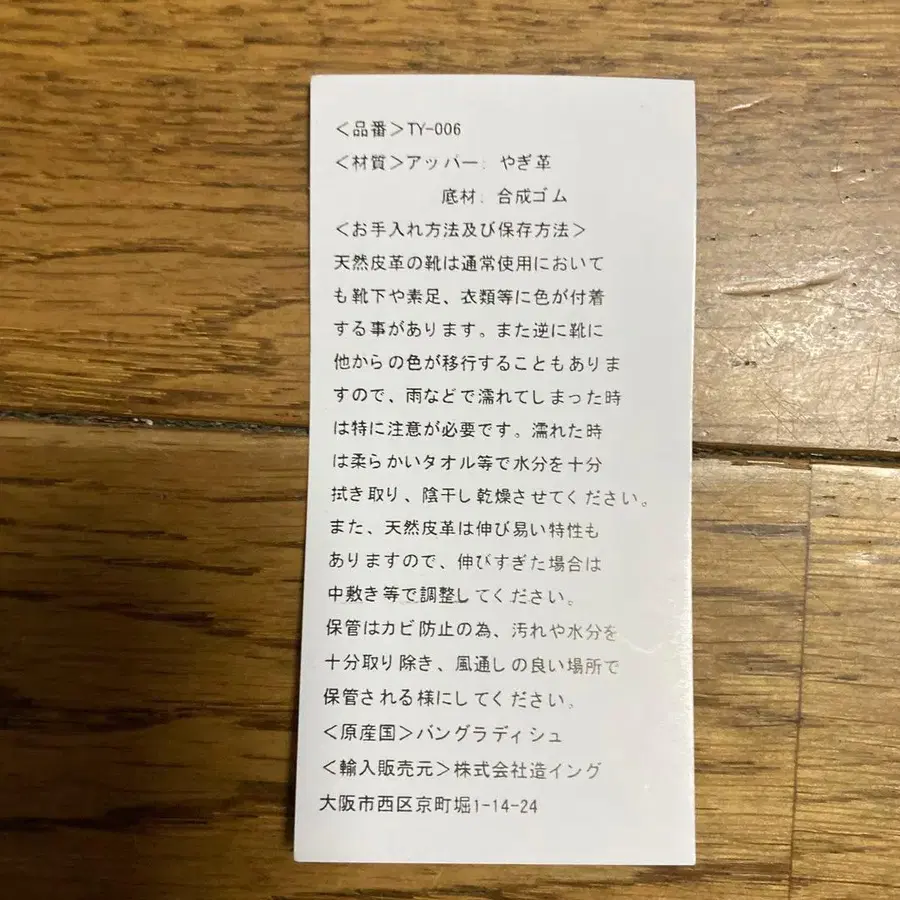 ＜品番＞TY-006
＜材質＞アッパー: やぎ革
底材: 合成ゴム
＜お手入れ方法及び保存方法＞
天然皮革の靴は通常使用において
も靴下や素足、衣類等に色が付着
する事があります。また逆に靴に
他からの色が移行することもありま
すので、雨などで濡れてしまった時
は特に注意が必要です。濡れた時
は柔らかいタオル等で水分を十分
拭き取り、陰干し乾燥させてください。
また、天然皮革は伸び易い特性も
ありますので、伸びすぎた場合は
中敷き等で調整してください。
保管はカビ防止の為、汚れや水分を
十分取り除き、風通しの良い場所で
保管される様にしてください。
＜原産国＞バングラディシュ
＜輸入販売元＞株式会社造イング
大阪市西区京町堀1-14-24